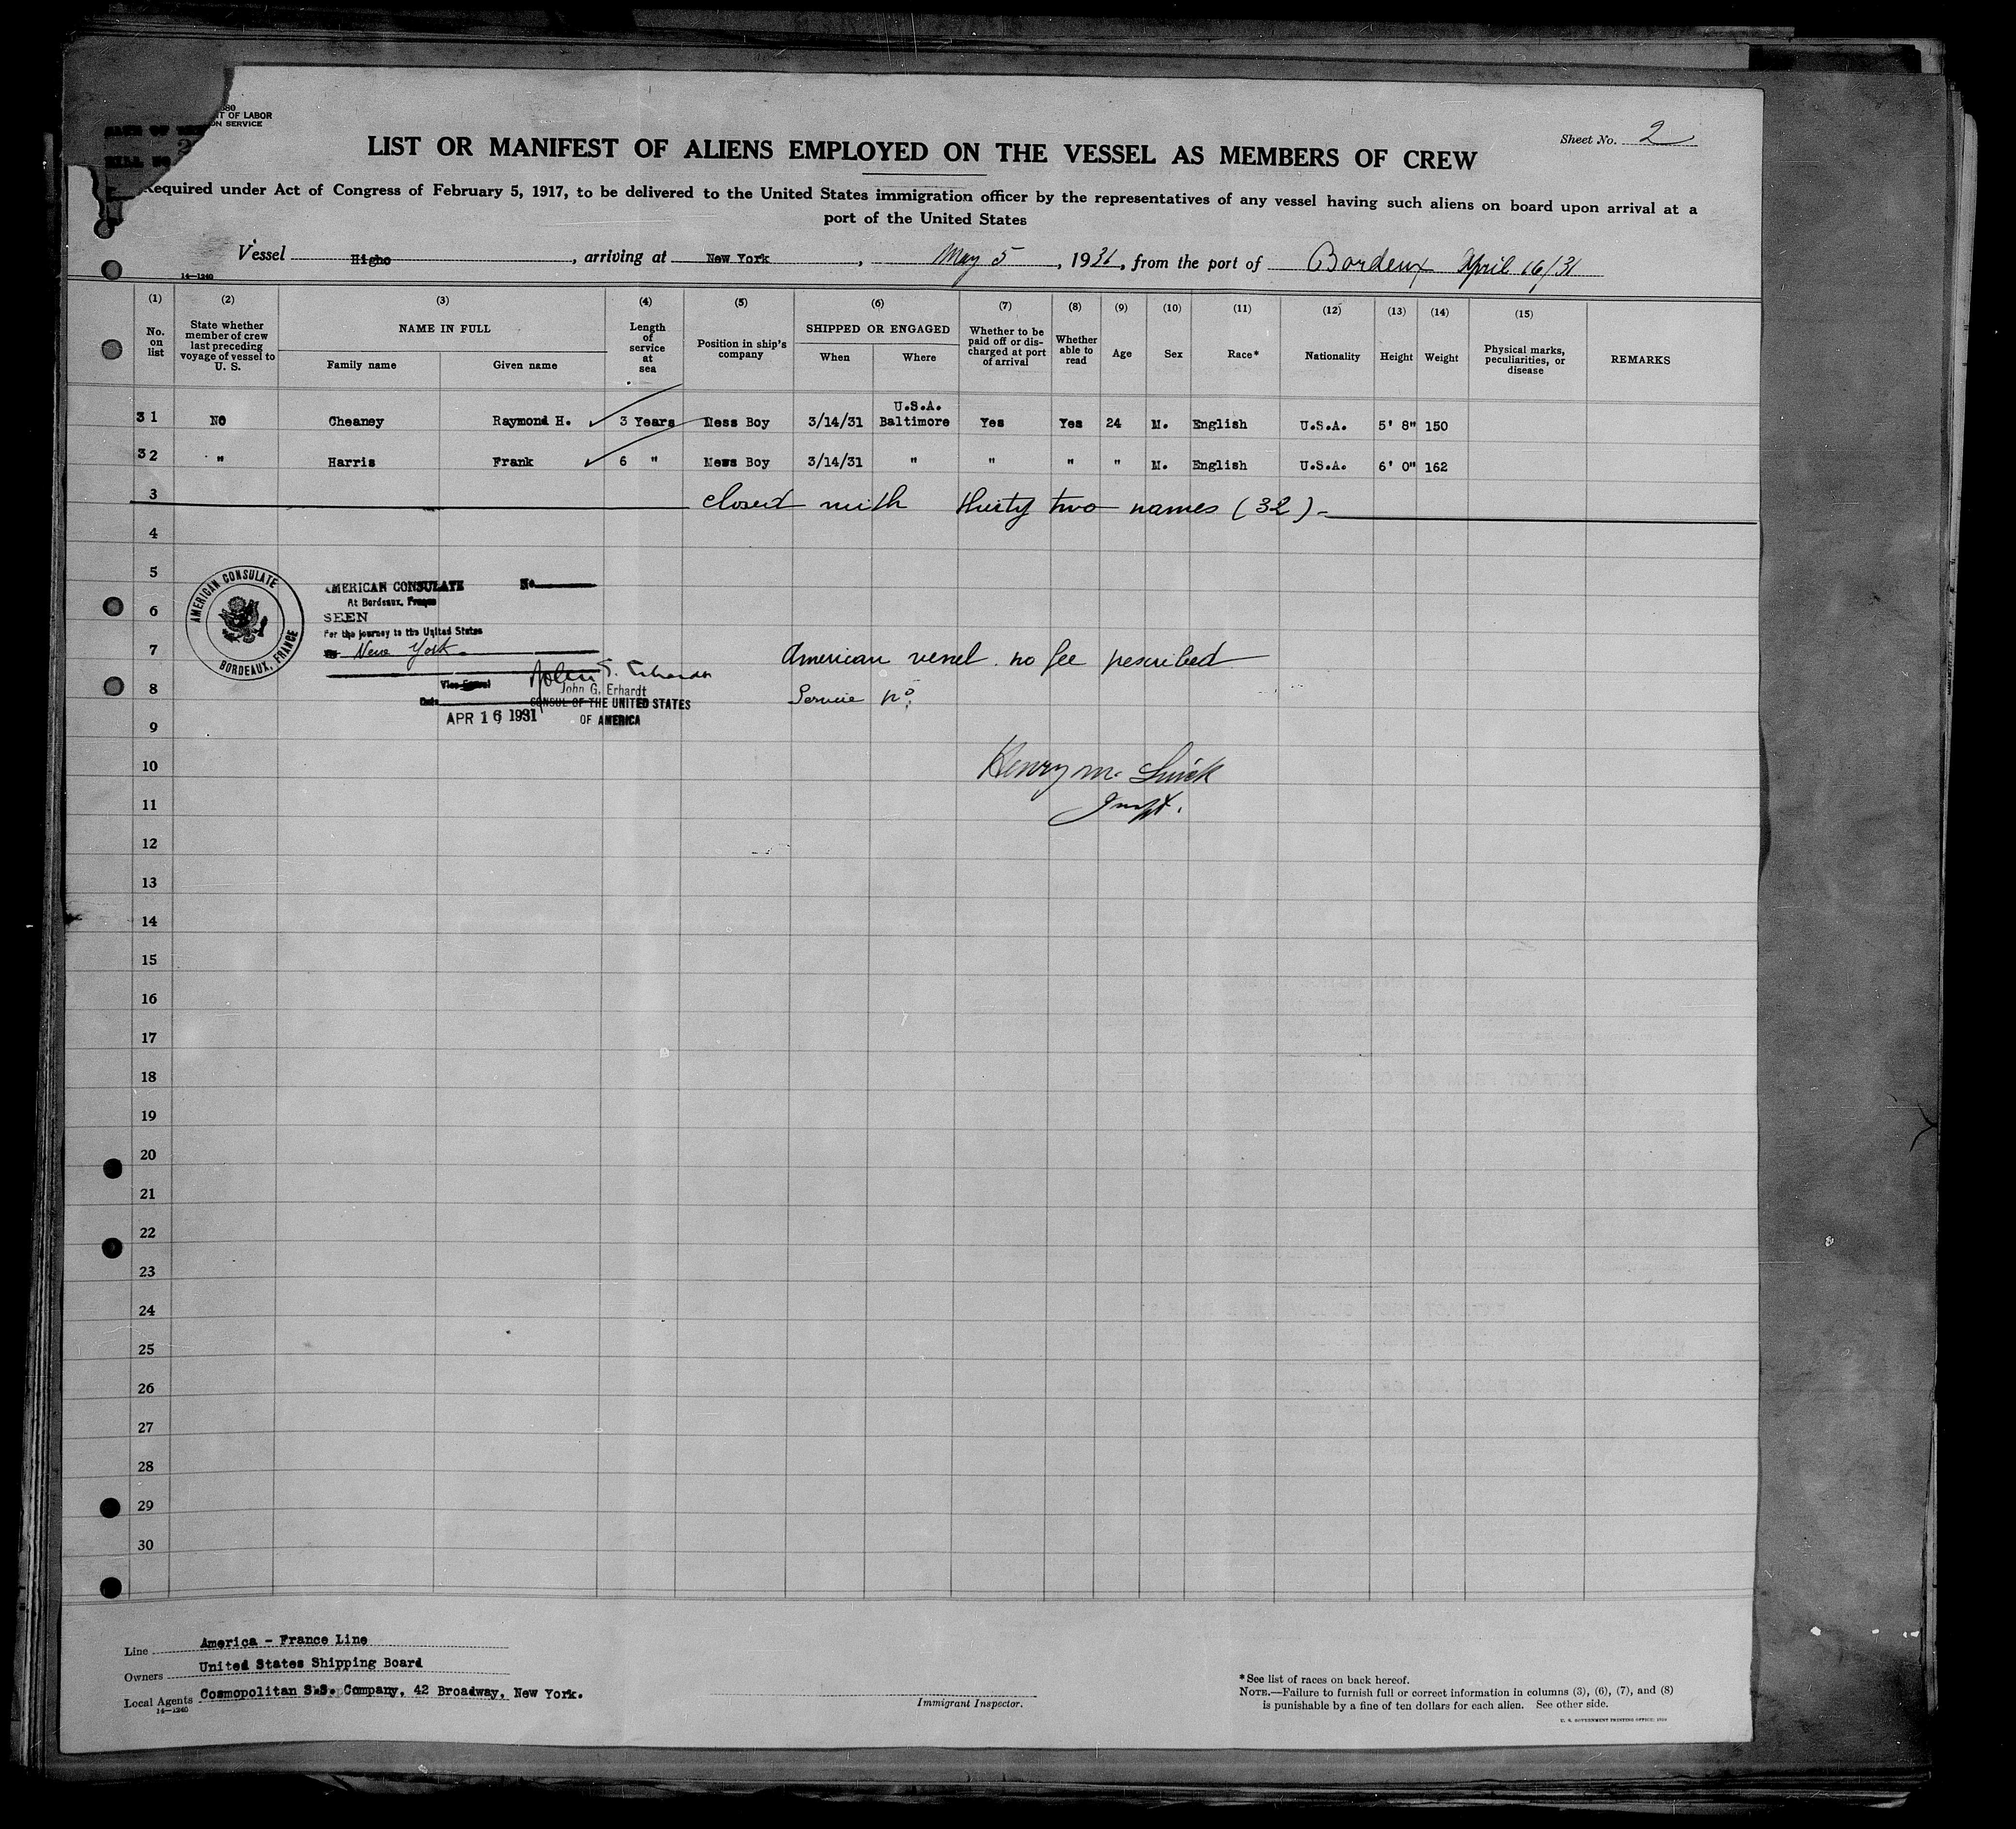 Sheet No. 2
LIST OR MANIFEST OF ALIENS EMPLOYED ON THE VESSEL AS MEMBERS OF CREW
Required under Act of Congress of February 5, 1917, to be delivered to the United States immigration officer by the representatives of any vessel having such aliens on board upon arrival at a
port of the United States
Vessel Higho, arriving at New York, May 5, 1931, from the port of Bordeux April 16/31
14—1240
(1) (2) (3) (4) (5) (6) (7) (8) (9) (10) (11) (12) (13) (14) (15)
No. on list
State whether member of crew last preceding voyage of vessel to U. S.
NAME IN FULL
Family name Given name
Length of service at sea
Position in ship's company
SHIPPED OR ENGAGED
When Where
Whether to be paid off or discharged at port of arrival
Whether able to read
Age Sex Race* Nationality Height Weight
Physical marks, peculiarities, or disease
REMARKS
31 No Cheaney Raymond H. 3 Years Mess Boy 3/14/31 U.S.A. Baltimore Yes Yes 24 M. English U.S.A. 5' 8" 150
32 " Harris Frank 6 " Mess Boy 3/14/31 " " " " M. English U.S.A. 6' 0" 162
3 closed with thirty two names (32)
4
5
6
7
8
9
10
11
12
13
14
15
16
17
18
19
20
21
22
23
24
25
26
27
28
29
30
AMERICAN CONSULATE
BORDEAUX, FRANCE
AMERICAN CONSULATE No
At Bordeaux, France
SEEN
For the journey to the United States
New York
Vice Consul
John G. Erhardt
CONSUL OF THE UNITED STATES
OF AMERICA
Date
APR 16 1931
American vessel no fee pescribed
Service No.
Henry M.
Inspt.
Line America - France Line
Owners United States Shipping Board
Local Agents Cosmopolitan S.S. Company, 42 Broadway, New York.
14—1240
Immigrant Inspector.
* See list of races on back hereof.
NOTE.—Failure to furnish full or correct information in columns (3), (6), (7), and (8)
is punishable by a fine of ten dollars for each alien. See other side.